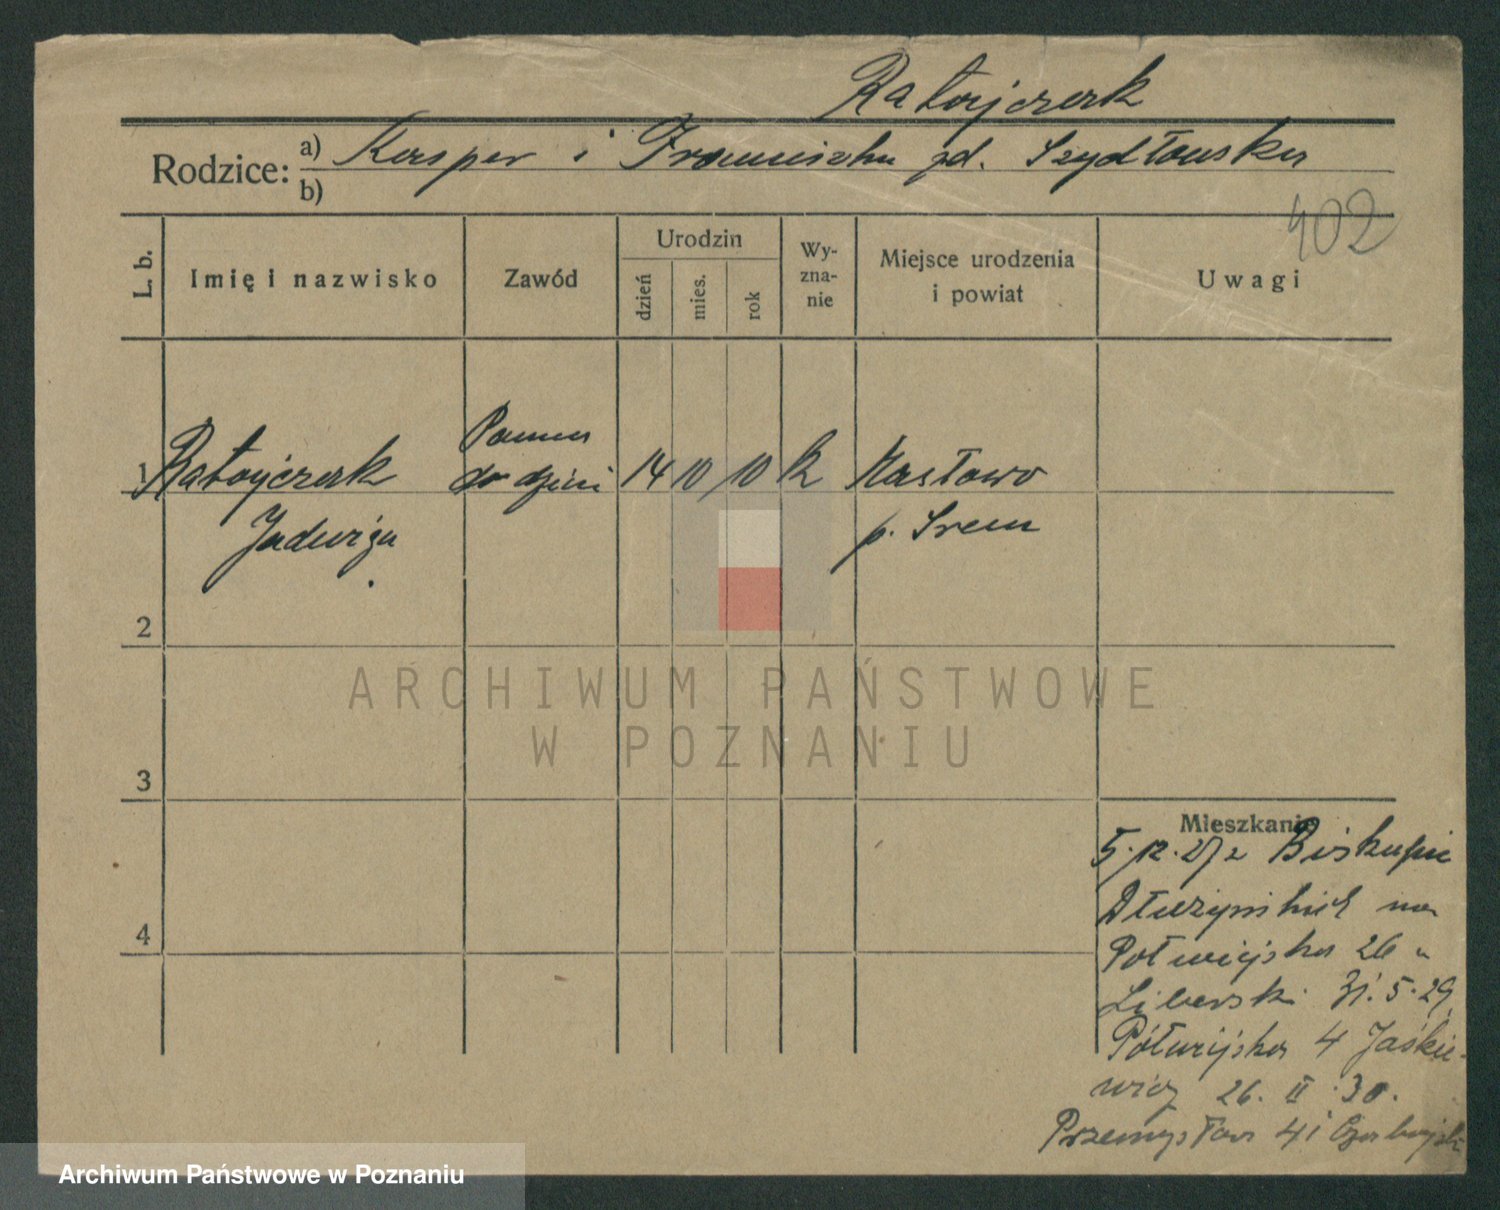 Ratajczak
Rodzice: a) Kasper i Franciszka zd. Szydłowska
b)
402
L. b.
Imię i nazwisko
Zawód
Urodzin
dzień
mies.
rok
Wy-
zna-
nie
Miejsce urodzenia
i powiat
Uwagi
1 Ratajczak
Jadwiga
Panna
do dzieci
14 10 10 k
Masłowo
p. Śrem
2
3
4
ARCHIWUM PAŃSTWOWE
W POZNANIU
Mieszkanie
5.12.27 z Biskupic
na
Półwiejska 26 u
Liberski 31.5.29
Półwiejska 4 Jaśkie-
wicz 26. II. 30.
Przemysłowa 41
Archiwum Państwowe w Poznaniu